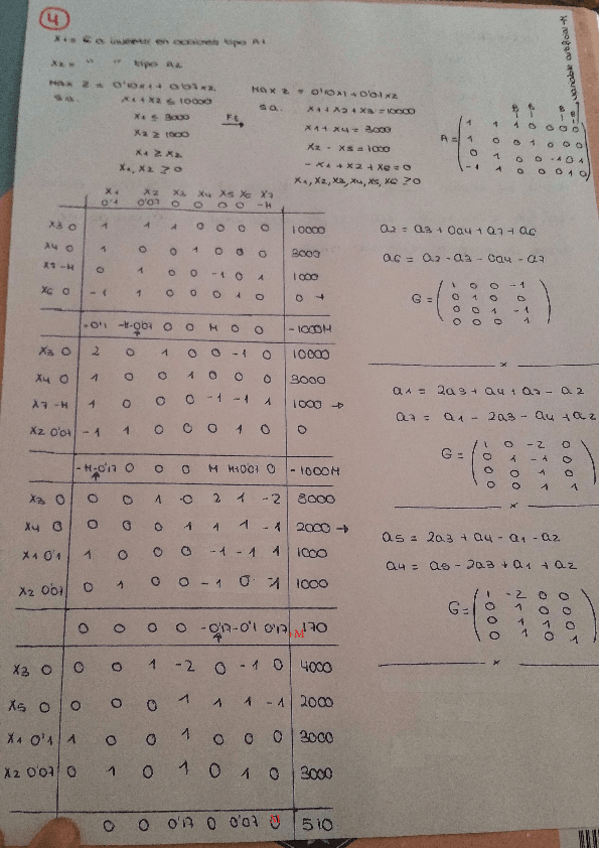 4
X1 = € a invertir en acciones tipo A1
X2 = " " tipo A2
Max Z = 0'10x1 + 0'07x2
s.a. x1+x2 ≤ 10000
x1 ≤ 3000
x2 ≥ 1000
x1 ≥ x2
x1, x2 ≥ 0
FE →
Max Z = 0'10x1 + 0'07x2
s.a. x1+x2+x3 = 10000
x1+x4 = 3000
x2 - x5 = 1000
-x1+x2+x6 = 0
x1, x2, x3, x4, x5, x6 ≥ 0
variable artificial
B B B B
A =
1 1 1 0 0 0 0
1 0 0 1 0 0 0
0 1 0 0 -1 0 1
-1 1 0 0 0 1 0
X1 X2 X3 X4 X5 X6 X7
0'1 0'07 0 0 0 0 -M
X3 0 1 1 1 0 0 0 0 10000
X4 0 1 0 0 1 0 0 0 3000
X7 -M 0 1 0 0 -1 0 1 1000
X6 0 -1 1 0 0 0 1 0 0 →
-0'1 -M-0'07 0 0 M 0 0 -1000M
X3 0 2 0 1 0 0 -1 0 10000
X4 0 1 0 0 1 0 0 0 3000
X7 -M 1 0 0 0 -1 -1 1 1000 →
X2 0'07 -1 1 0 0 0 1 0 0
-M-0'17 0 0 0 M M+0'07 0 -1000M
X3 0 0 0 1 0 2 1 -2 8000
X4 0 0 0 0 1 1 1 -1 2000 →
X1 0'1 1 0 0 0 -1 -1 1 1000
X2 0'07 0 1 0 0 -1 0 1 1000
0 0 0 0 -0'17 -0'1 0'17+M 170
X3 0 0 0 1 -2 0 -1 0 4000
X5 0 0 0 0 1 1 1 -1 2000
X1 0'1 1 0 0 1 0 0 0 3000
X2 0'07 0 1 0 1 0 1 0 3000
0 0 0'17 0 0'07 0 510
a2 = a3 + 0a4 + a7 + a6
a6 = a2 - a3 - 0a4 - a7
G =
1 0 0 -1
0 1 0 0
0 0 1 -1
0 0 0 1
a1 = 2a3 + a4 + a7 - a2
a7 = a1 - 2a3 - a4 + a2
G =
1 0 -2 0
0 1 -1 0
0 0 1 0
0 0 1 1
a5 = 2a3 + a4 - a1 - a2
a4 = a5 - 2a3 + a1 + a2
G =
1 -2 0 0
0 1 0 0
0 1 1 0
0 1 0 1